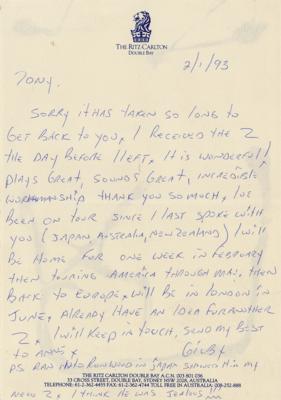 THE RITZ-CARLTON
DOUBLE BAY
2/1/93
TONY.
SORRY IT HAS TAKEN SO LONG TO
GET BACK TO YOU, I RECEIVED THE Z
THE DAY BEFORE I LEFT. IT IS WONDERFUL!
PLAYS GREAT, SOUNDS GREAT, INCREDIBLE
WORKMANSHIP THANK YOU SO MUCH, I'VE
BEEN ON TOUR SINCE I LAST SPOKE WITH
YOU (JAPAN, AUSTRALIA, NEW ZEALAND) I WILL
BE HOME FOR ONE WEEK IN FEBRUARY
THEN TOURING AMERICA THROUGH MAY, THEN
BACK TO EUROPE, WILL BE IN LONDON IN
JUNE, ALREADY HAVE AN IDEA FOR ANOTHER
Z. I WILL KEEP IN TOUCH, SEND MY BEST
TO
PS RAN INTO IN JAPAN SHOWED HIM MY
NEW Z, I THINK HE WAS JEALOUS!!!
THE RITZ-CARLTON DOUBLE BAY A.C.N. 003 801 036
33 CROSS STREET, DOUBLE BAY, SYDNEY NSW 2028, AUSTRALIA
TELEPHONE: 61-2-362-4455 FAX: 61-2-362-4744 TOLL FREE IN AUSTRALIA: 008-252-888